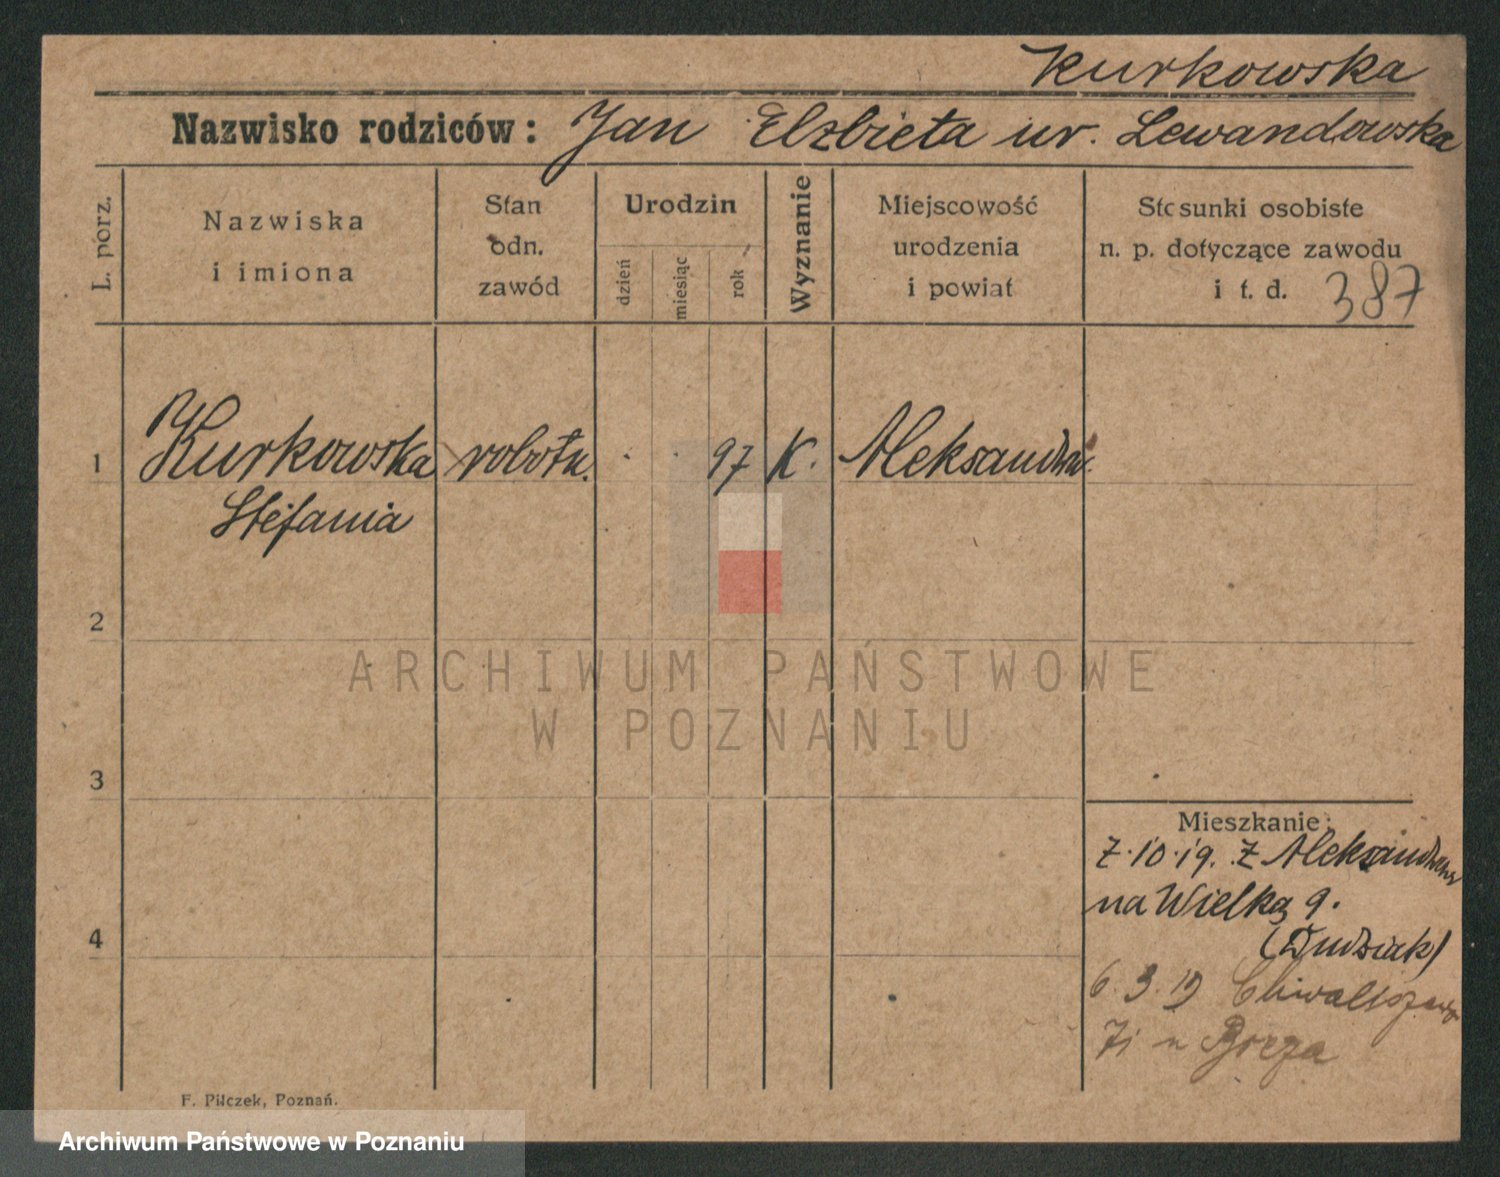 Kurkowska
Nazwisko rodziców: Jan Elzbieta ur. Lewandowska
L. porz.
Nazwiska
i imiona
Stan
odn.
zawód
Urodzin
dzień
miesiąc
rok
Wyznanie
Miejscowość
urodzenia
i powiat
Stosunki osobiste
n. p. dotyczące zawodu
i t. d. 387
1 Kurkowska robotn. 97 K.
Stefania
2
ARCHIWUM PAŃSTWOWE
W POZNANIU
3
4
Mieszkanie:
7.10.19. Z
na Wielką 9.
(Dudziak)
6.3.19
F. Pilczek, Poznań.
Archiwum Państwowe w Poznaniu